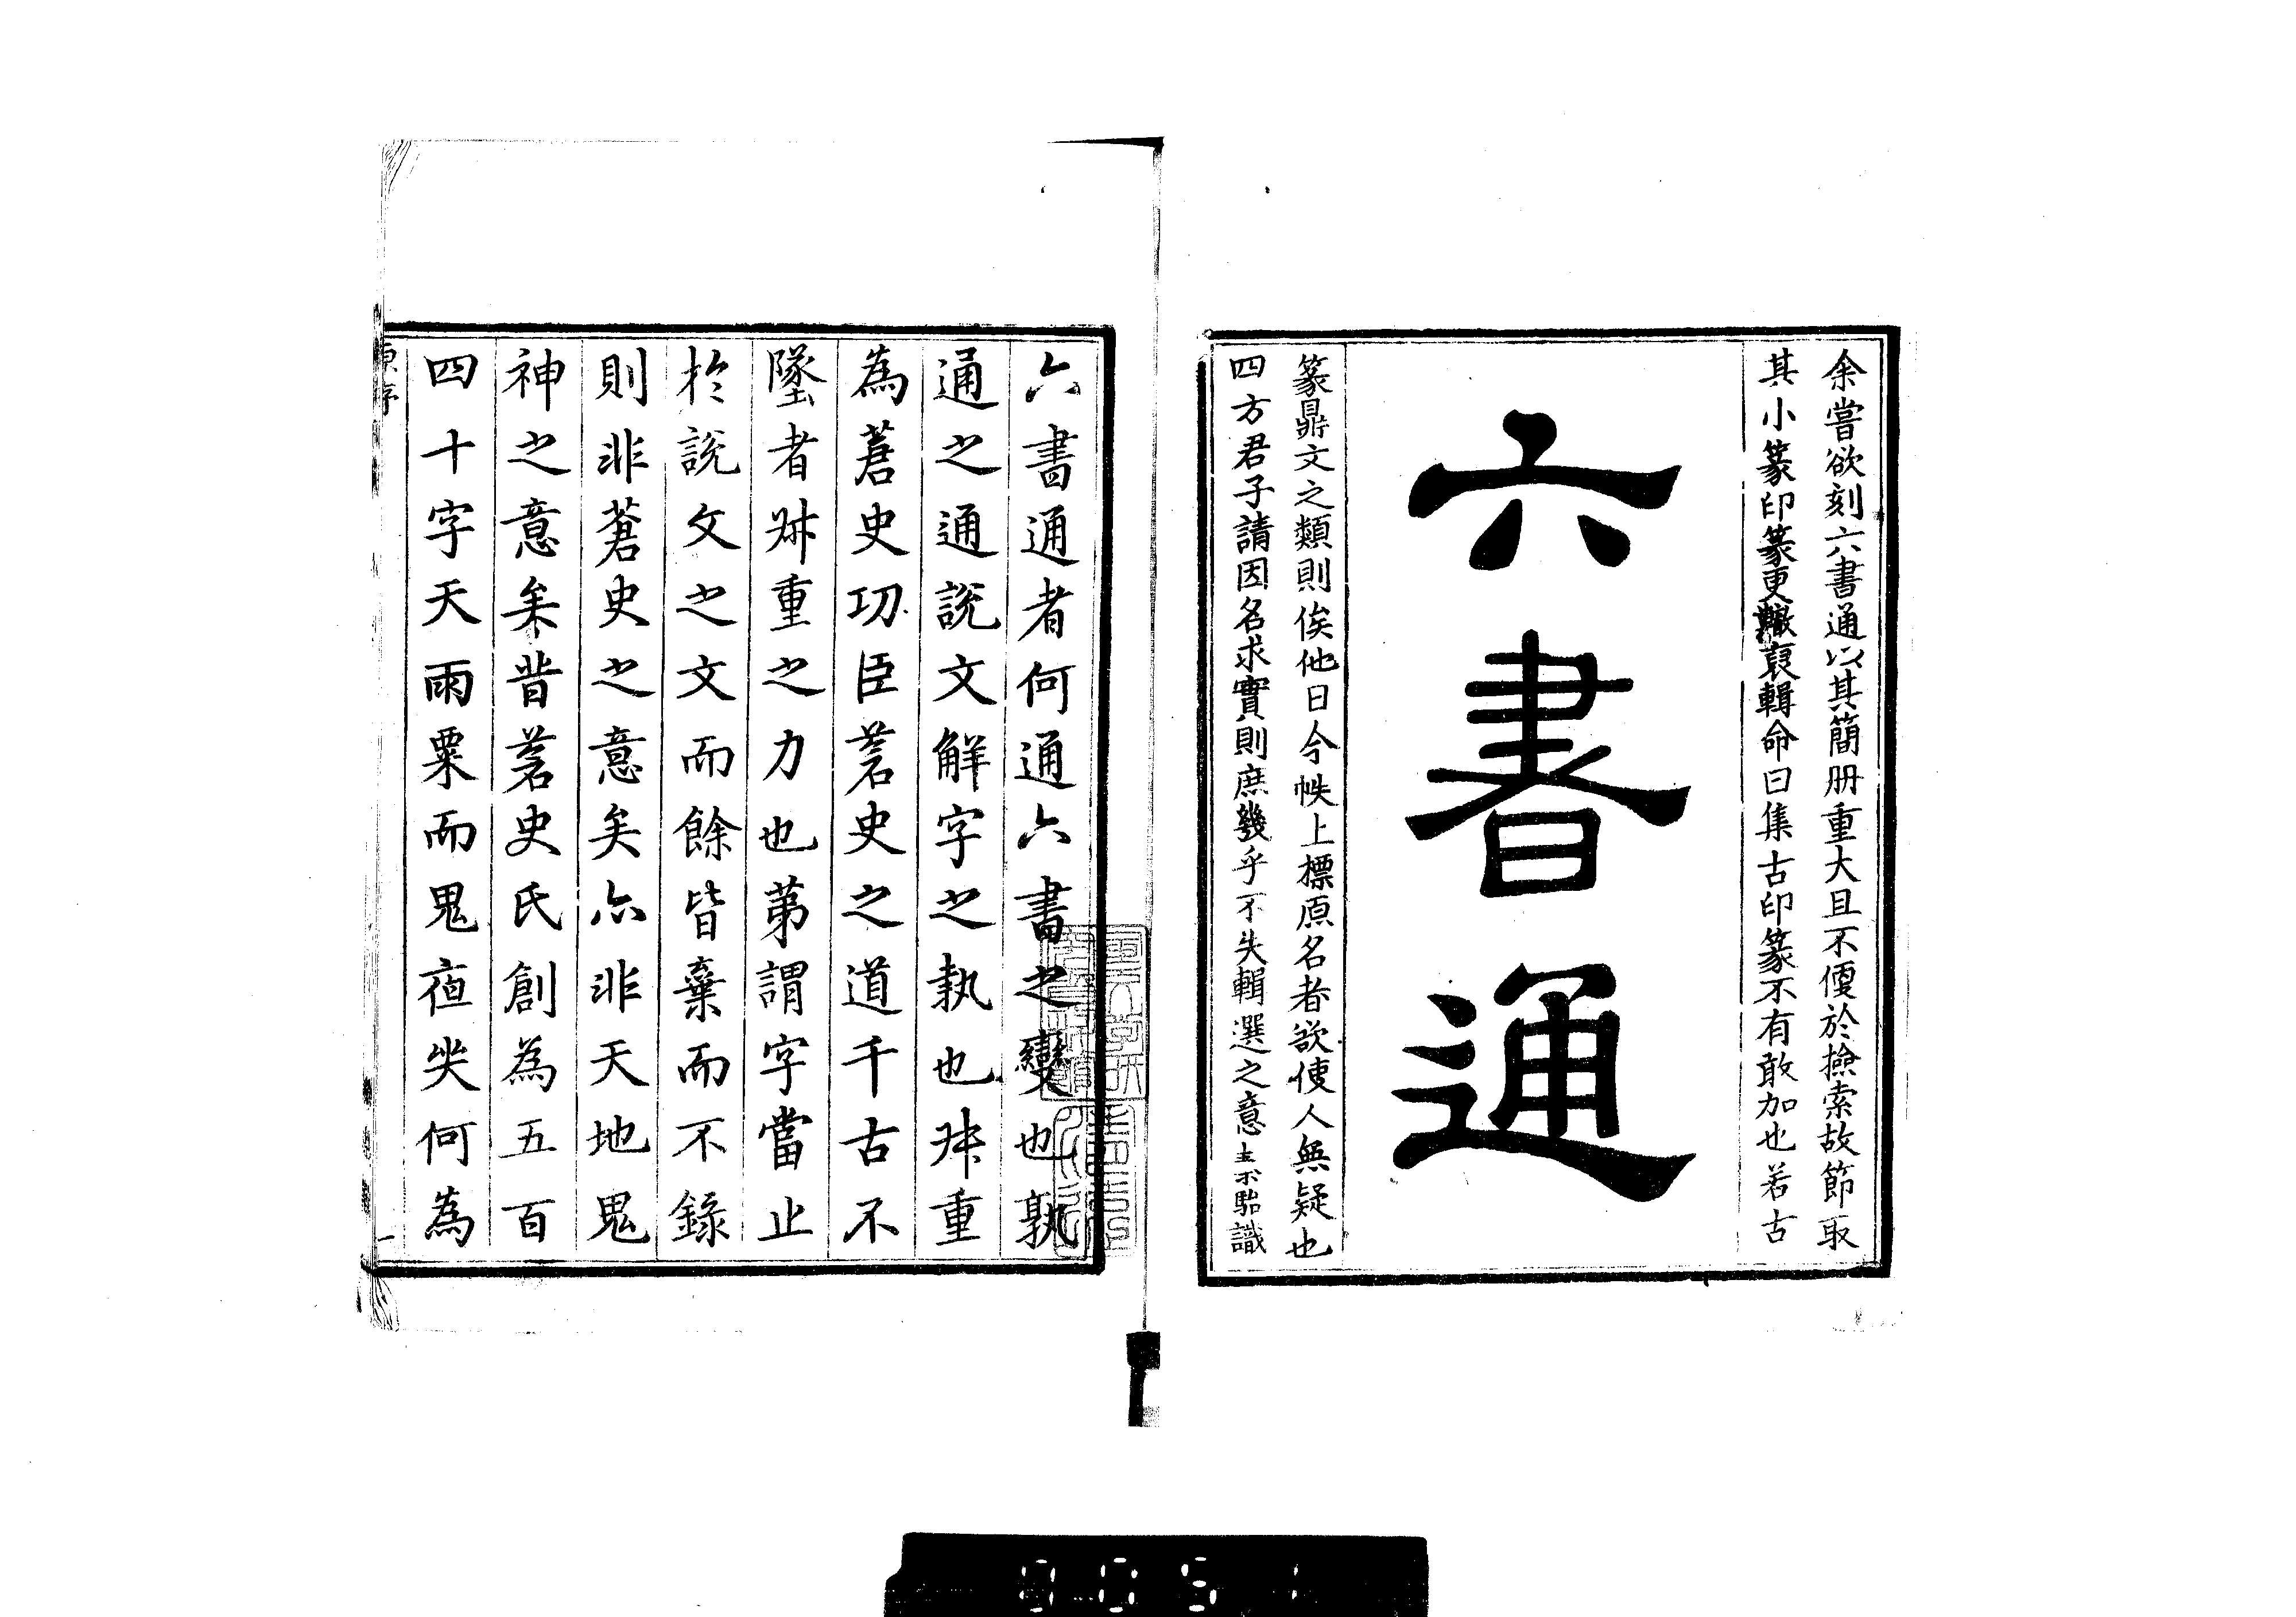 余嘗欲刻六書通以其簡册重大且不便於撿索故節取
其小篆印篆更輙裒輯命曰集古印篆不有敢加也若古
六書通
篆鼎文之類則俟他日今帙上標原名者欲使人無疑也
四方君子請因名求實則庶幾乎不失輯選之意
六書通者何通六書之變也孰
通之通說文解字之執也叔重
為蒼史功臣蒼史之道千古不
墜者叔重之力也苐謂字當止
於說文之文而餘皆棄而不錄
則非蒼史之意矣亦非天地鬼
神之意矣昔蒼史氏創為五百
四十字天雨粟而鬼夜哭何為
原序
一